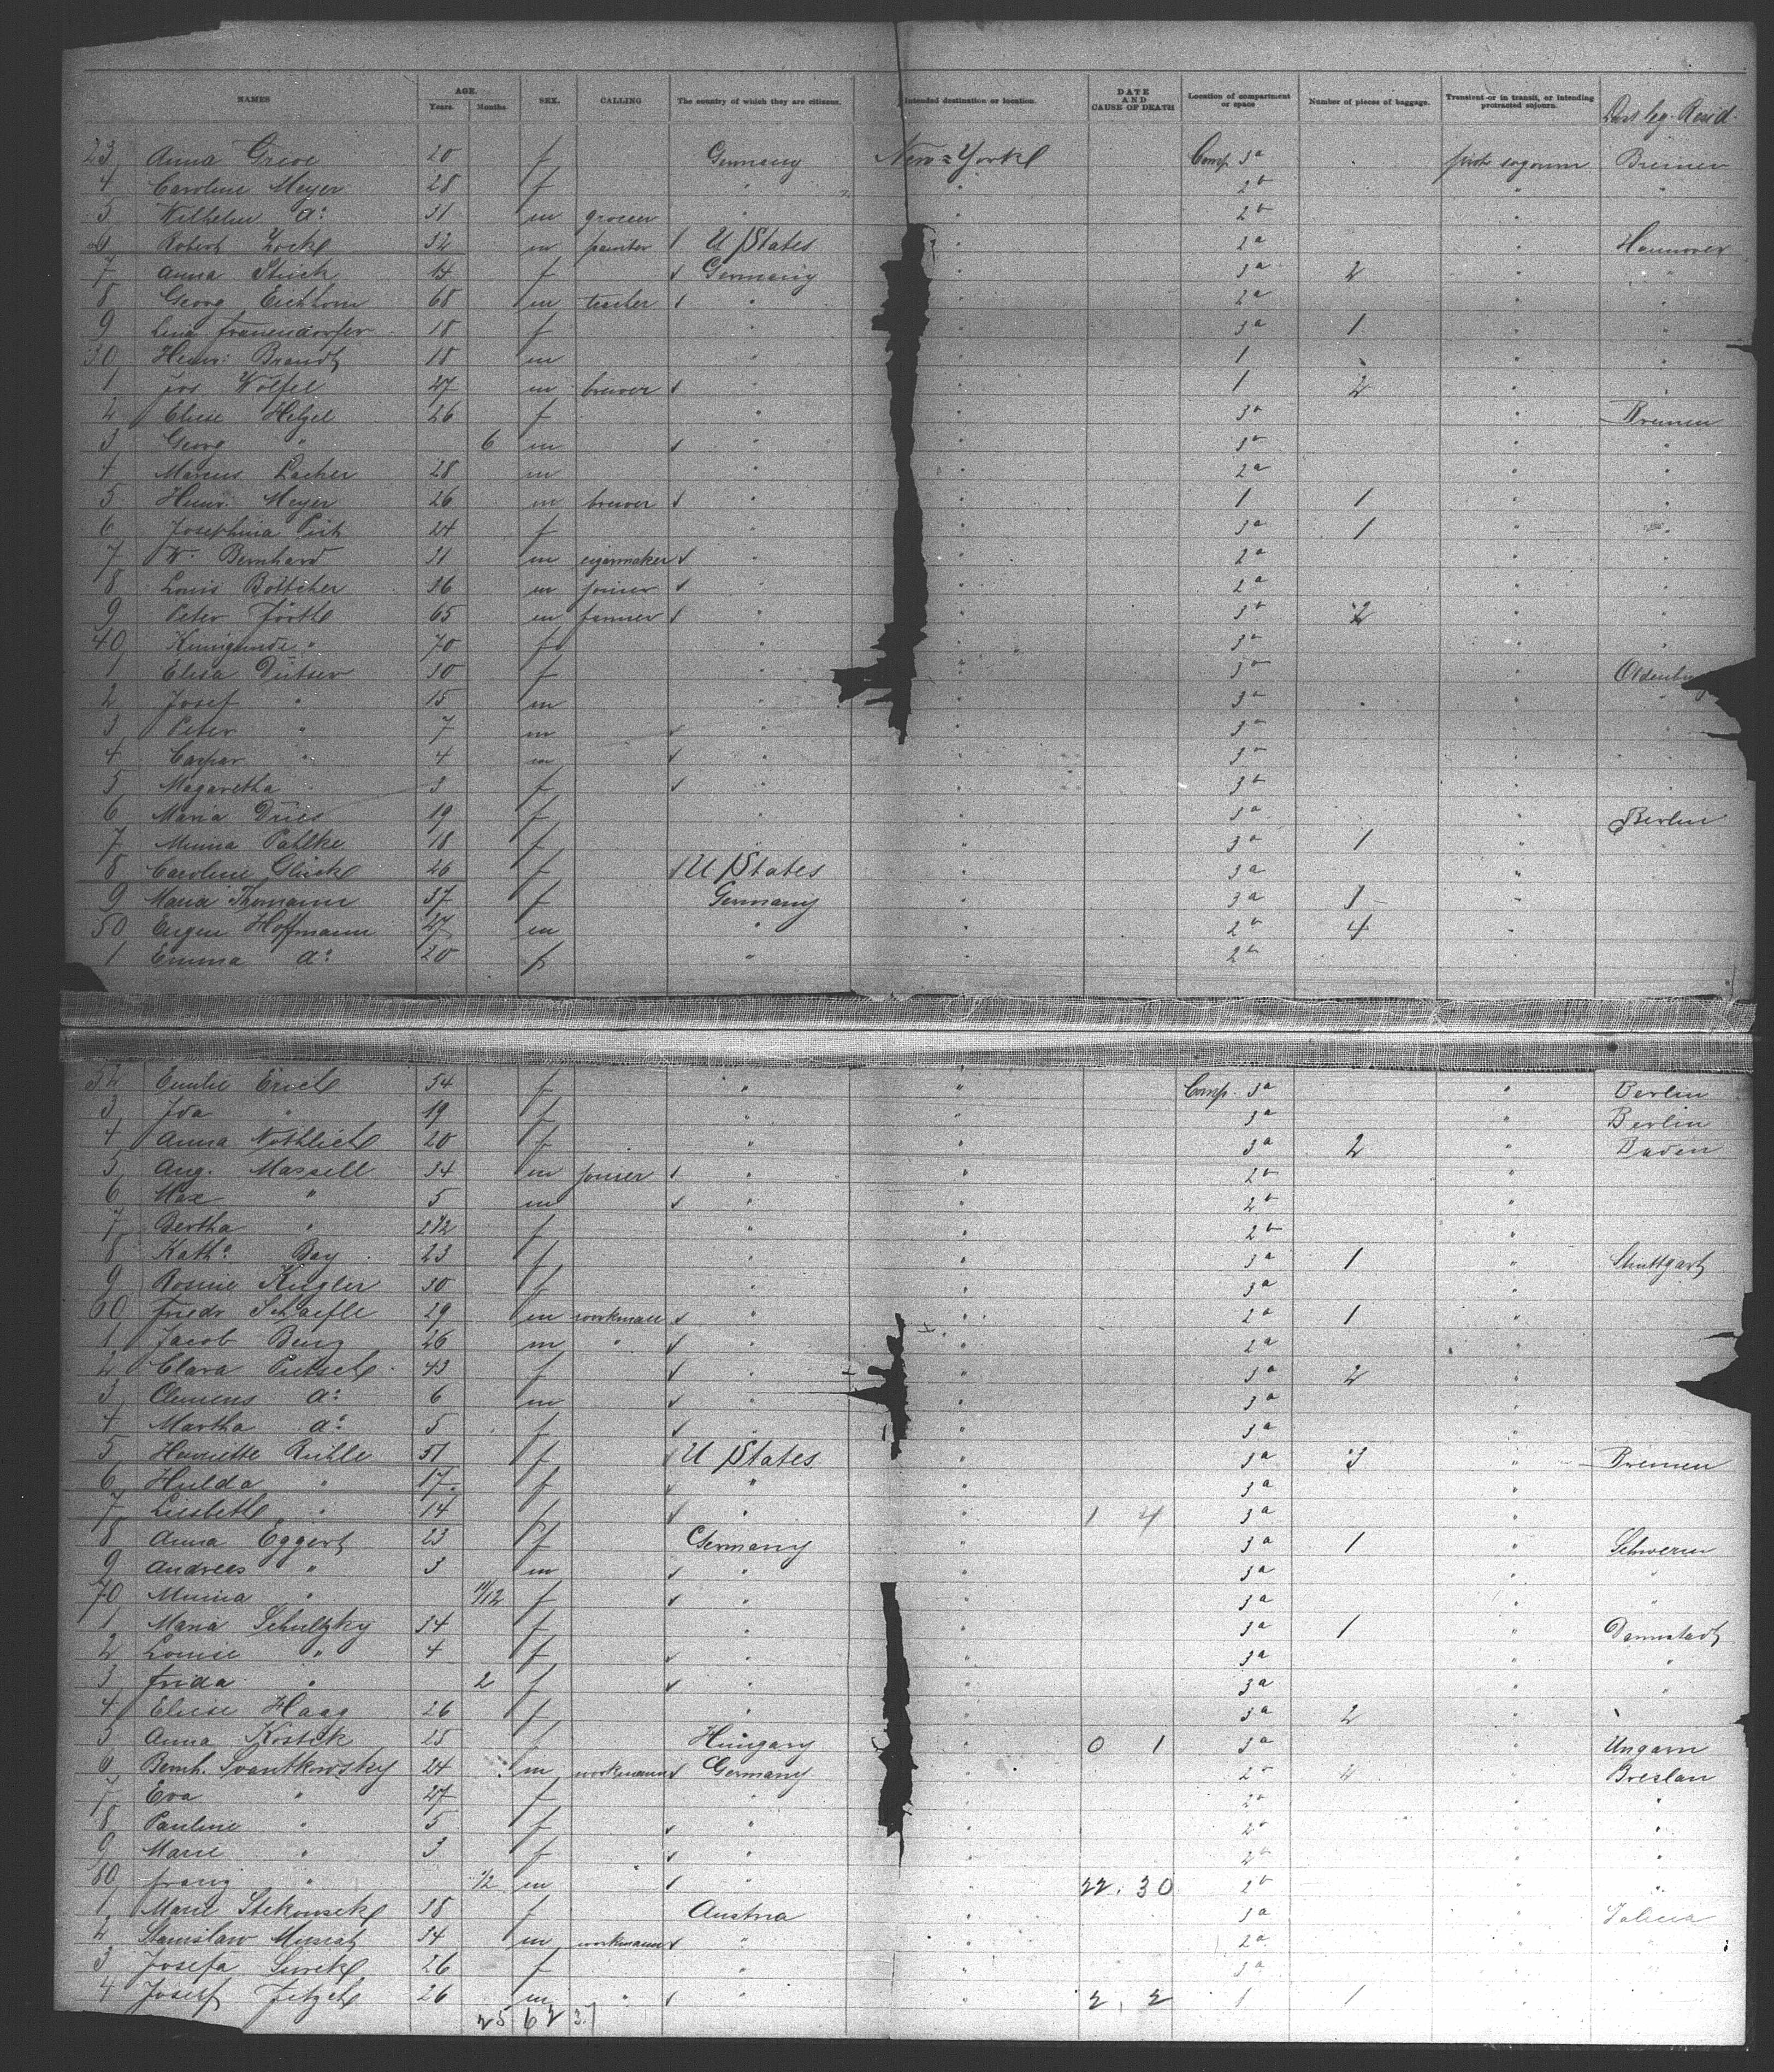 NAMES AGE. Years. Months. SEX. CALLING The country of which they are citizens. Intended destination or location. DATE AND CAUSE OF DEATH Location of compartment or space Number of pieces of baggage. Transient or in transit, or intending protracted sojourn. Last leg. Resid.
23 Anna Greve 20 f Germany New-York Comp. 3a Bremen
4 Caroline Meyer 28 f " " 2b " "
5 Wilhelm do 31 m grocer " " 2b "
6 Robert Locke 32 m painter U States " 2a " Hannover
7 Anna Stuck 14 f Germany " 3a 2 " "
8 Georg Eichhorn 68 m " " 2a " "
9 Lina Frauendorfer 18 f " " 3a 1 " "
30 Heinr. Brandt 18 m " " 1 " "
1 Jos Wölfel 27 m brewer " " 1 2 " "
2 Elise Helzel 26 f " " 3a " Bremen
3 Georg " 6 m " " 3a " "
4 Marcus Lacher 28 m " " 2a " "
5 Heinr. Meyer 26 m brewer " " 1 1 " "
6 Josephina 24 f " " 3a 1 "
7 W. Bernhard 31 m cigarmaker " " 2a " "
8 Louis Böttcher 36 m joiner " " 2a " "
9 Peter Förtl 65 m farmer " " 3a 2 " "
40 Kunigunde " 70 f " " 3a " "
1 Elisa Dütser 30 f " " 3a " Oldenburg
2 Josef " 15 m " " 3a " "
3 Peter " 7 m " " 3a " "
4 Caspar " 4 m " " 3a " "
5 Magaretha " 3 f " " 3a " "
6 Maria Dries 19 f " " 3a " Berlin
7 Minna Pahlke 18 f " " 3a 1 " "
8 Caroline Glück 26 f U States " 3a "
9 Maria Thomann 37 f Germany " 3a 1 "
50 Eugen Hoffmann 27 m " " 2b 4 "
1 Emma do 20 f " " 2b
52 Emilie 54 f " " Comp. 3a " Berlin
3 Ida " 19 f " " 3a " Berlin
4 Anna Nöthlich 20 f " " 3a 2 " Baden
5 Aug. Massell 34 m joiner " " 2b "
6 Max " 5 m " " 2b "
7 Bertha " 2 1/2 f " " 2b "
8 Kath. Bay 23 f " " 3a 1 " Stuttgart
9 Rosine Kugler 30 f " " 3a "
60 Friedr Schaefle 29 m workman " " 2a 1 "
1 Jacob Benz 26 m " " " 2a "
2 Clara Pietsch 43 f " " 3a 2 "
3 Clemens do 6 m " " 3a "
4 Martha do 5 f " " 3a "
5 Henriette Rühle 51 f U States " 3a 3 " Bremen
6 Hulda " 17 f " " 3a "
7 Liesbeth " 14 f " " 1 4 3a "
8 Anna Eggert 23 f Germany " 3a 1 " Schwerin
9 Andrees " 3 m " " 3a " "
70 Minna " 11/12 f " " 3a " "
1 Maria Schultzky 34 f " " 3a 1 " Darmstadt
2 Louise " 4 f " " 3a " "
3 Frida " 2 f " " 3a " "
4 Eliese Haag 26 f " " 3a 2 "
5 Anna Kostek 25 f Hungary " 0 1 3a " Ungarn
6 Bernh. Svantkowsky 24 m workmann Germany " 2b 4 " Breslau
7 Eva " 27 f " " 2b " "
8 Pauline " 5 f " " 2b " "
9 Marie " 3 f " " 2b " "
80 Franz " 1/2 m " " 22. 30 2b " "
1 Marie Stekowsck 38 f Austria " 3a " Galicia
2 Stanislaw 34 m workmann " " 2a "
3 Josefa 26 f " " 3a "
4 Josef 26 m " " " 2. 2 1 1 "
25 62 37